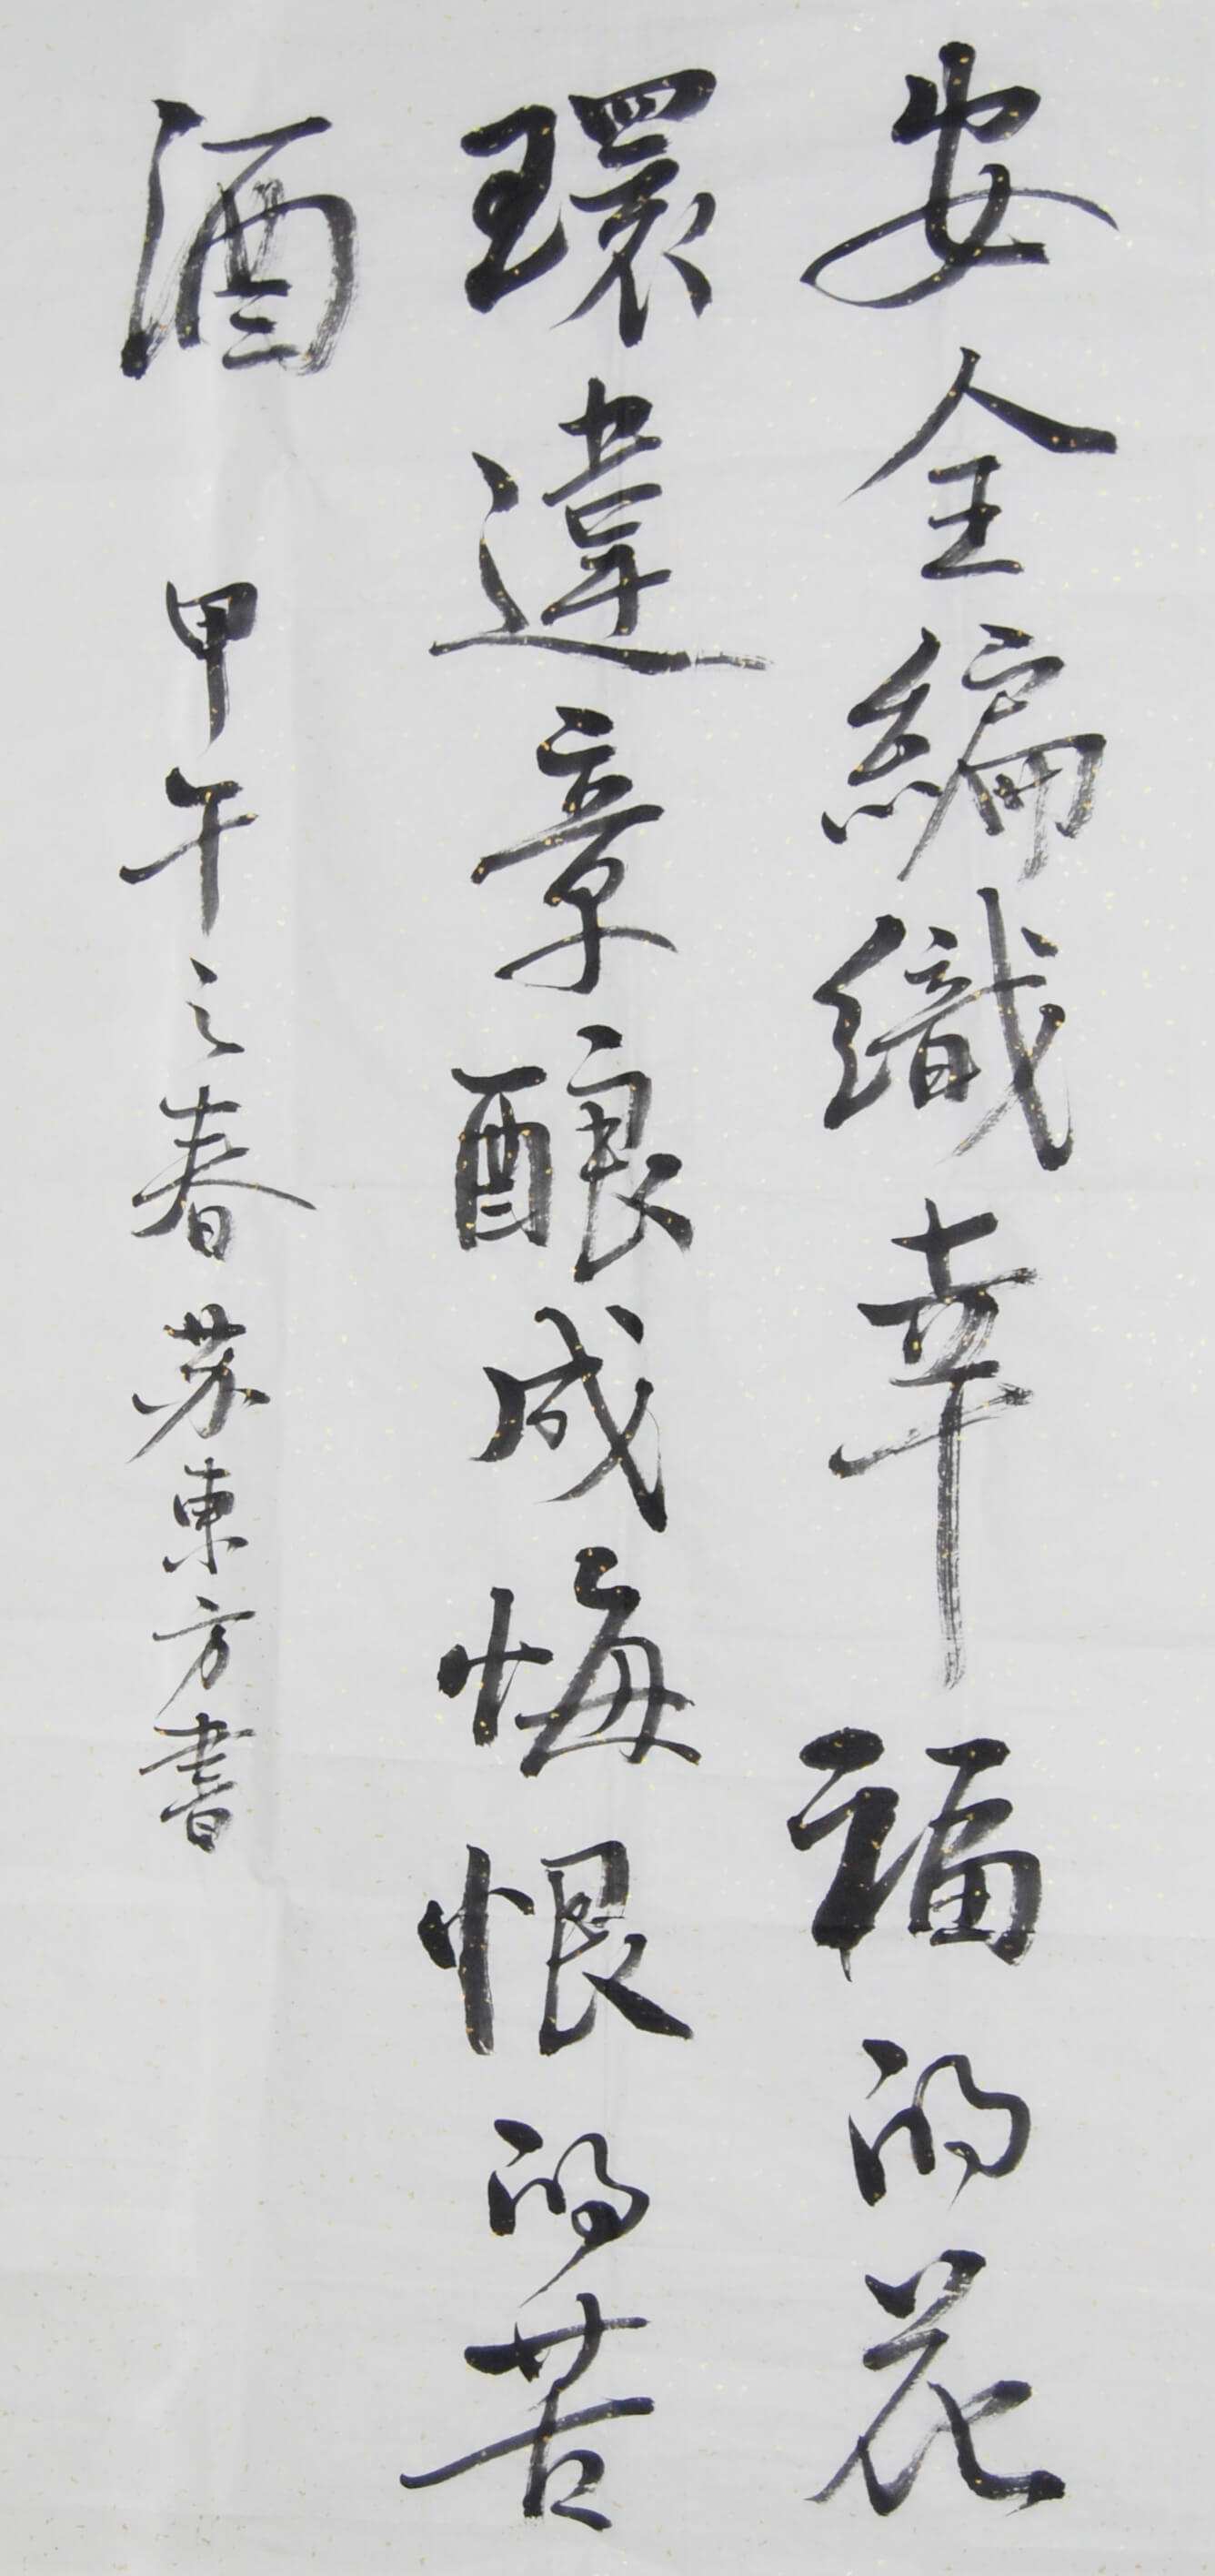 安全編織幸福的花
環違章酿成悔恨的苦
酒 甲午之春苏東方書